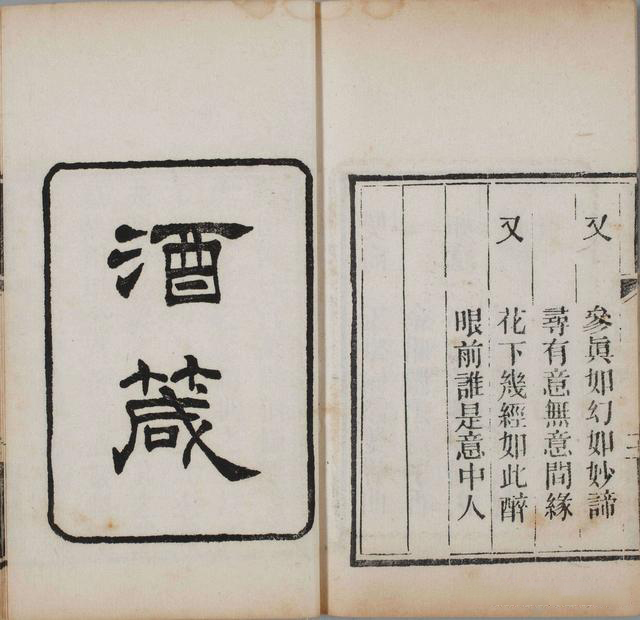 又
參真如幻如妙諦
尋有意無意間緣
又
花下幾經如此醉
眼前誰是意中人
酒箴